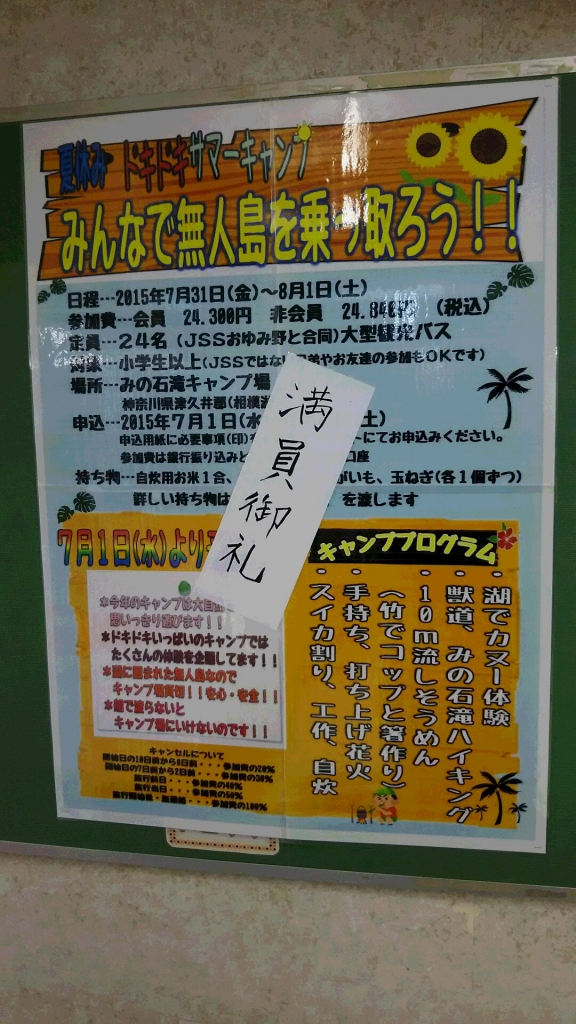 夏休み ドキドキサマーキャンプ
みんなで無人島を乗っ取ろう!!
日程…2015年7月31日(金)~8月1日(土)
参加費…会員 24.300円 非会員 24.840円 (税込)
定員…24名(JSSおゆみ野と合同)大型観光バス
対象…小学生以上(JSSではな 弟やお友達の参加もOKです)
場所…みの石滝キャンプ場
神奈川県津久井郡(相模
申込…2015年7月1日(水 土)
申込用紙に必要事項(印) トにてお申込みください。
参加費は銀行振り込みと 口座
持ち物…自炊用お米1合、 がいも、玉ねぎ(各1個ずつ)
詳しい持ち物は を渡します
満員御礼
7月1日(水)より
*今年のキャンプは大自然
思いっきり遊びます!!
*ドキドキいっぱいのキャンプでは
たくさんの体験を企画してます!!
*湖に囲まれた無人島なので
キャンプ場貸切!!を心・を全!!
*船で渡らないと
キャンプ場にいけないのです!!
キャンセルについて
開始日の10日前から8日前・・・参加費の20%
開始日の7日前から2日前・・・参加費の30%
旅行前日・・・参加費の40%
旅行当日・・・参加費の50%
旅行開始後・無連絡・・・参加費の100%
キャンププログラム
・湖でカヌー体験
・獣道、みの石滝ハイキング
・10m流しそうめん
(竹でコップと箸作り)
・手持ち、打ち上げ花火
・スイカ割り、工作、自炊